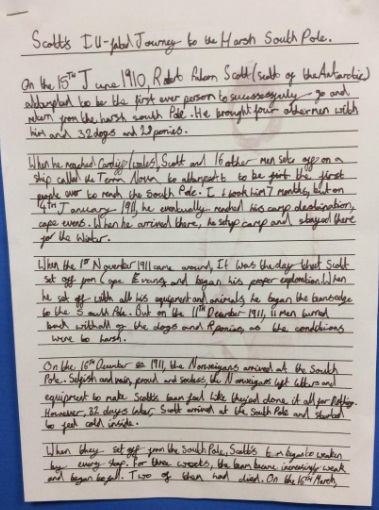 Scott's Ill-fated Journey to the Harsh South Pole.
On the 15TH June 1910, Robert Falcon Scott (Scott of the Antarctic)
attempted to be the first ever person to successfully go and
return from the harsh South Pole. He brought four other men with
him and 32 dogs and ponies.
When he reached Cardiff (Wales), Scott and 16 other men set off on a
ship called the Terra Nova to attempt to be first the first
people ever to reach the South Pole. It took him 7 months, but on
4TH January 1911, he eventually reached his camp destination,
cape evans. When he arrived there, he setup camp and stayed there
for the Winter.
When the 1ST November 1911 came around, It was the day that Scott
set off from Cape Evans and began his proper exploration. When
he set off with all his equipment and animals, he began the
to the South Pole. But on the 11TH December 1911, 11 men turned
back with all of the dogs and ponies, as the conditions
were to harsh.
On the 16TH December 1911, the Norweigans arrived at the South
Pole. Selfish and vain, proud and, the Norweigans left letters and
equipment to make Scott's team feel like they'd done it all for Nothing.
However, 32 days later, Scott arrived at the South Pole and started
to feel cold inside.
When they set off from the South Pole, Scott's team began to weaken
by every step. For three weeks, the team became increasingly weak
and began to fall. Two of them had died. On the 16TH March,